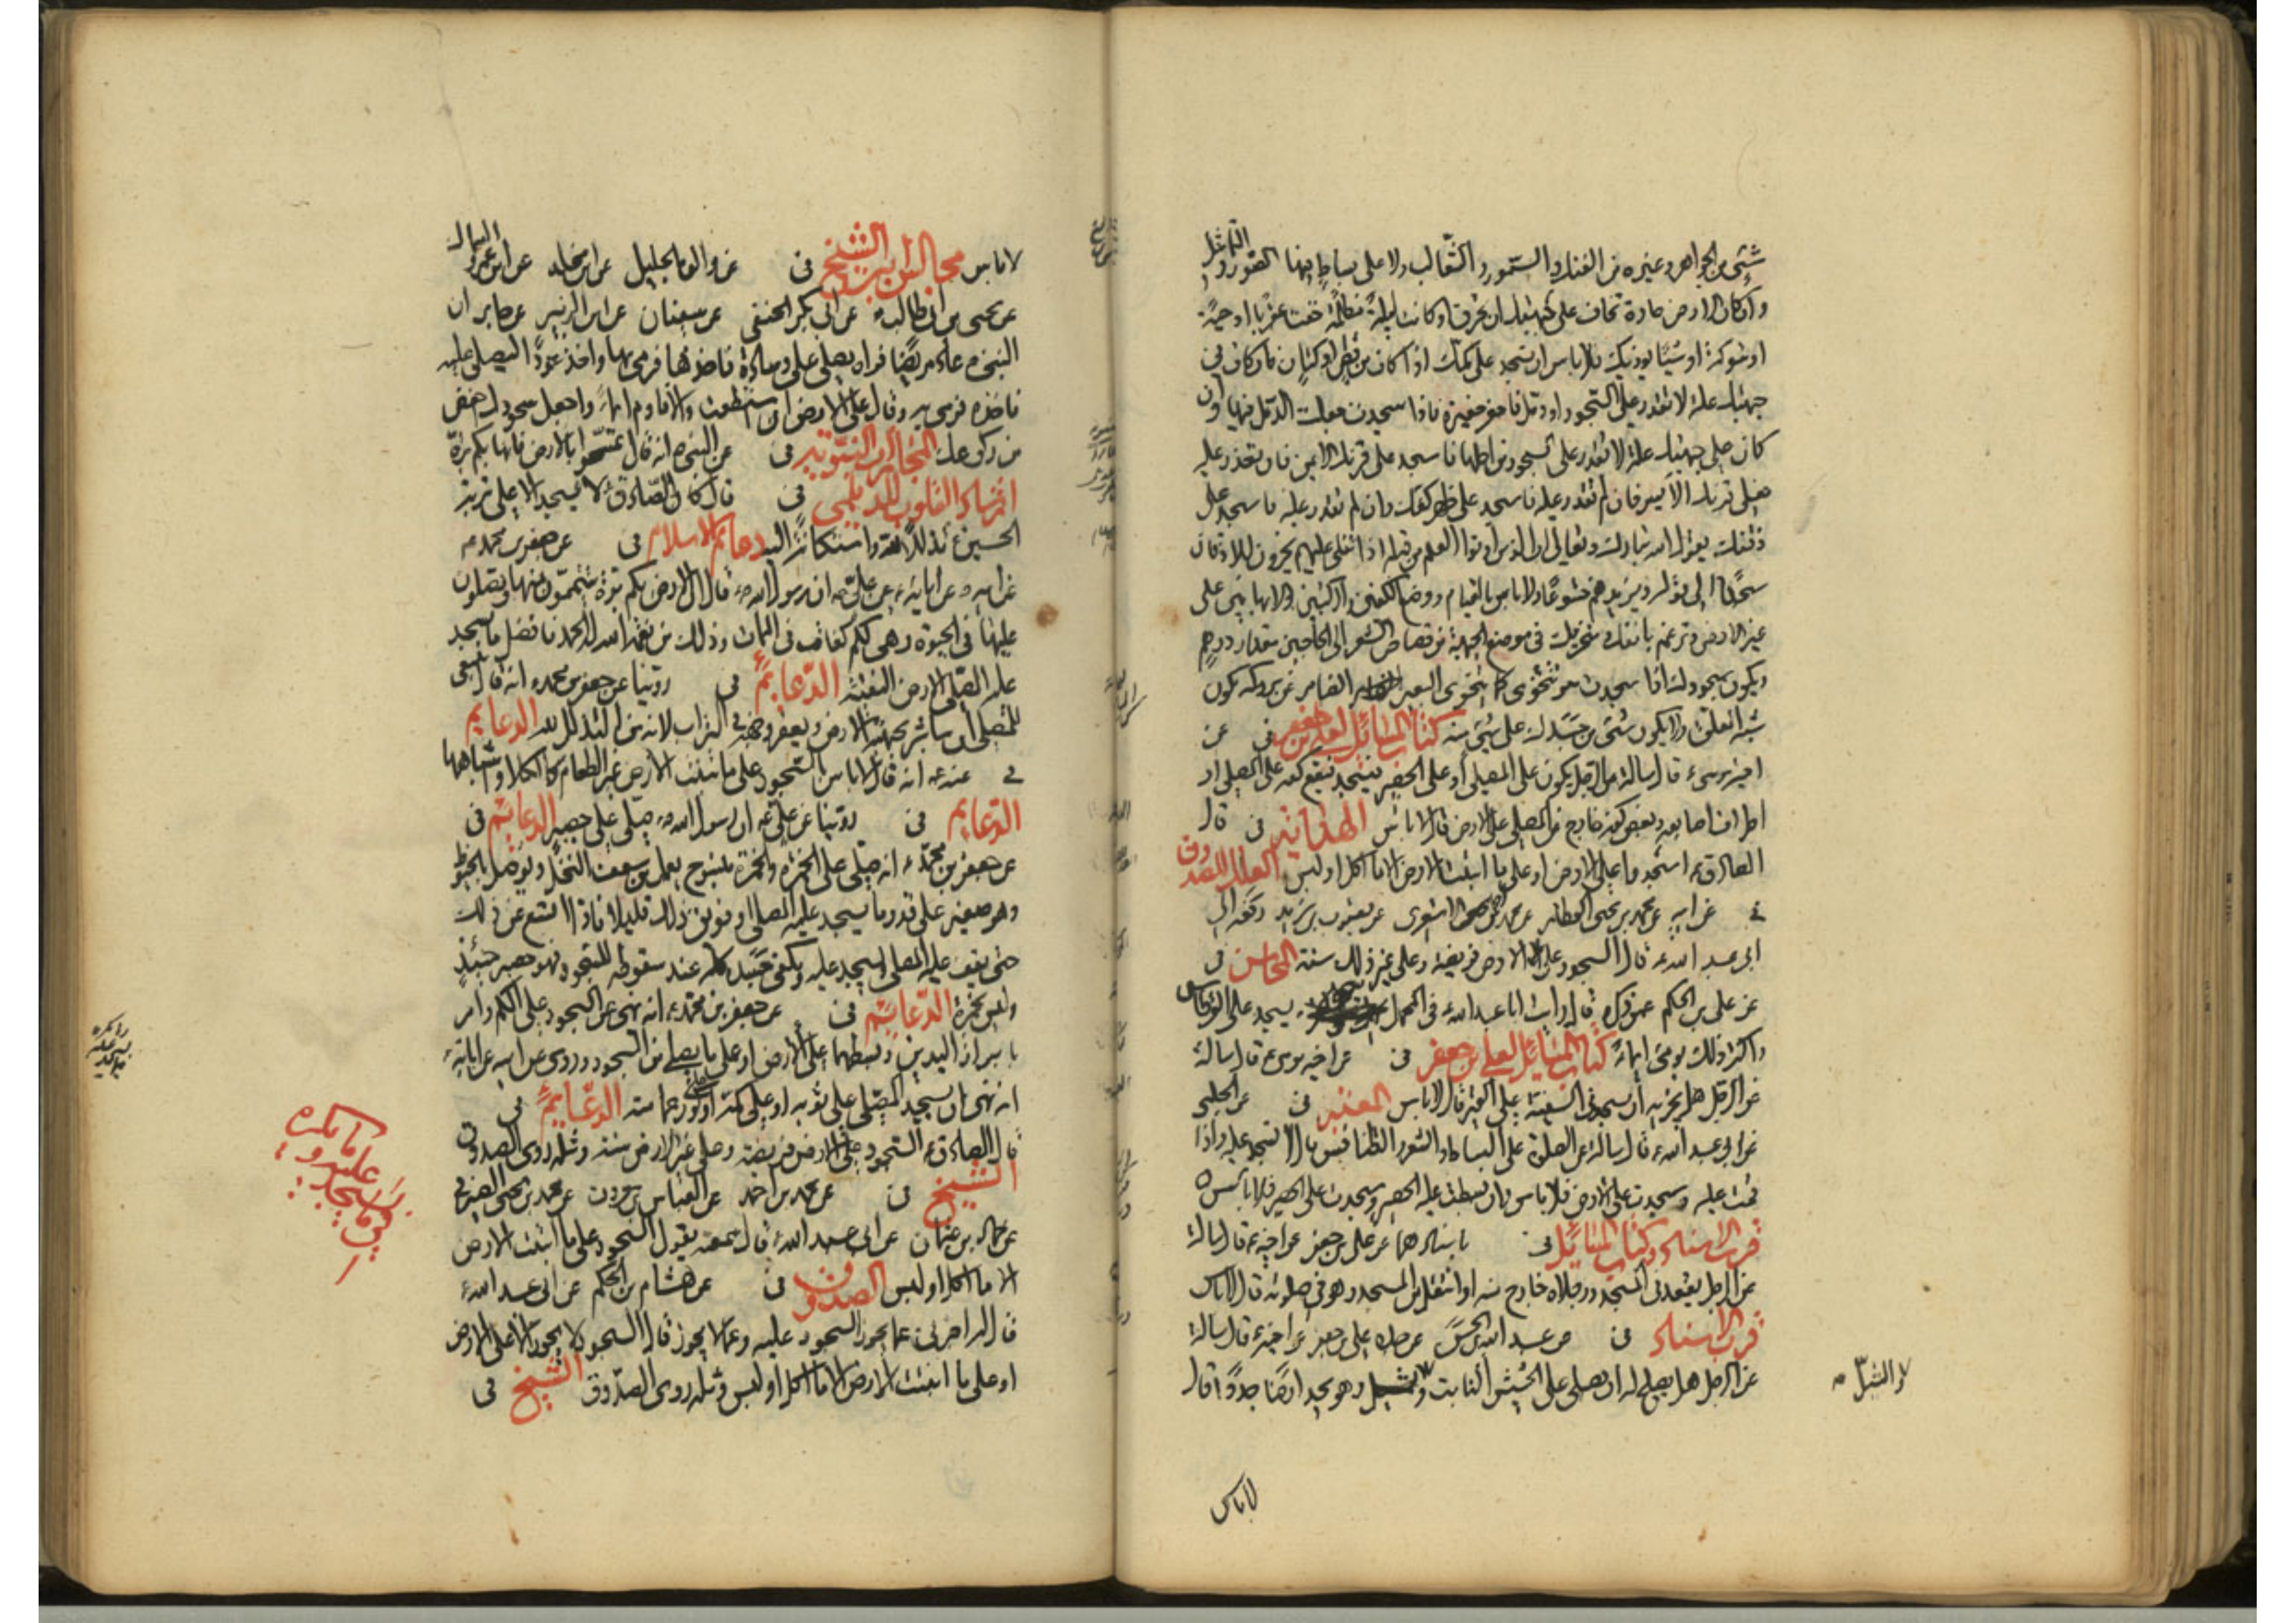 شئ من الجواهر وغيره من الفنك والسمور والثعالب ولا على بساط فيها الصور والتماثيل
وان كان الارض حارة تخاف على جبهتك ان تحرق او كانت ليلة مظلمة خفت عقربا او حية
او شوكة او شيئا يوذيك فلا باس ان تسجد على كمك اذا كان من قطن او كتان فان كان في
جبهتك علة لا تقدر على السجود او دمل فاحفر حفيرة فاذا سجدت جعلت الدمل فيها وان
كان على جبهتك علة لا تقدر على السجود من اجلها فاسجد على قرنك الايمن فان تعذر عليه
فعلى قرنك الايسر فان لم تقدر عليه فاسجد على ظهر كفك فان لم تقدر عليه فاسجد على
ذقنك يقول الله تبارك وتعالى ان الذين اوتوا العلم من قبله اذا تتلى عليهم يخرون للاذقان
سجدا الى قوله ويزيدهم خشوعا ولا باس بالقيام ووضع الكفين والركبتين والابهامين على
غير الارض وترغم بانفك ومنخريك في موضع الجبهة من قصاص الشعر الى الحاجبين مقدار درهم
ويكون سجودك اذا سجدت تتخوى كما يتخوى البعير الضامر عن بروكه تكون
شبه المعلق ولا يكون شئ من جسدك على شئ منه كتاب المسائل لعلي بن جعفر في عن
اخيه موسى ع قال سالته عن الرجل يكون على المصلى او على الحصير فيسجد فيقع كفه على المصلى او
اطراف اصابعه وبعض كفه خارج عن المصلى على الارض قال لا باس الهداية في قال
الصادق ع اسجدوا على الارض او على ما انبتت الارض الا ما اكل او لبس العلل للصدوق
في عن ابيه عن محمد بن يحيى العطار عن محمد بن احمد الاشعري عن يعقوب بن يزيد رفعه الى
ابي عبد الله ع قال السجود على الارض فريضة وعلى غير ذلك سنة المحاسن في
عن علي بن الحكم عمن ذكره قال رايت ابا عبد الله ع في المحمل يسجد على القرطاس
واكثر ذلك يومئ ايماء كتاب المسائل لعلي بن جعفر في عن اخيه موسى ع قال سالته
عن الرجل هل يجزيه ان يسجد في السفينة على القير قال لا باس المعتبر في عن الحلبي
عن ابي عبد الله ع قال سالته عن الصلوة على البساط والشعر والطنافس قال لا تسجد عليه واذا
قمت عليه وسجدت على الارض فلا باس وان بسطت عليه الحصير وسجدت على الحصير فلا باس
قرب الاسناد وكتاب المسائل في باسنادهما عن علي بن جعفر عن اخيه ع قال سالته
عن الرجل يقعد في المسجد ورجلاه خارج منه او انتقل من المسجد وهو في صلوته قال لا باس
قرب الاسناد في عن عبد الله بن الحسن عن جده علي بن جعفر عن اخيه ع قال سالته
عن الرجل هل يصلح له ان يصلي على الحشيش النابت وهو يجد ارضا جددا قال
والثيل
لا باس
لا باس مجالس ابن الشيخ في عن والده الجليل عن ابن مخلد عن ابن عمرو السماك
عن يحيى بن ابي طالب عن ابي بكر الحنفي عن سفيان عن ابي الزبير عن جابر ان
النبي ص عاد مريضا فراه يصلي على وسادة فاخذها فرمى بها واخذ عودا ليصلي عليه
فاخذه فرمى به وقال على الارض ان استطعت والا فاوم ايماء واجعل سجودك اخفض
من ركوعك المجازات النبوية في عن النبي ص انه قال تمسحوا بالارض فانها بكم برة
ارشاد القلوب للديلمي في قال كان الصادق ع لا يسجد الا على تربة
الحسين ع تذللا لله واستكانة اليه دعائم الاسلام في عن جعفر بن محمد ع
عن ابيه عن ابائه ع عن علي ع ان رسول الله ص قال ان الارض بكم برة تتيممون منها وتصلون
عليها في الحيوة وهي لكم كفات في الممات وذلك من نعمة الله له الحمد فافضل ما يسجد
عليه المصلي الارض النقية الدعائم في روينا عن جعفر بن محمد ع انه قال ينبغي
للمصلي ان يباشر بجبهته الارض ويعفر وجهه في التراب لانه من التذلل لله الدعائم
في عنه ع انه قال لا باس بالسجود على ما تنبت الارض غير الطعام كالكلا واشباهها
الدعائم في روينا عن علي ع ان رسول الله ص صلى على حصير الدعائم في
عن جعفر بن محمد ع انه صلى على الخمرة والخمرة منسوج يعمل من سعف النخل ويوصل بالخيوط
وهو صغير على قدر ما يسجد عليه المصلي او فويق ذلك قليلا فاذا اتسع عن ذلك
حتى يقف عليه المصلي ويسجد عليه ويكفي جسده كله عند سقوطه للسجود فهو حصير حينئذ
وليس بخمرة الدعائم في عن جعفر بن محمد ع انه نهى عن السجود على الكم وامر
بابراز اليدين وبسطهما على الارض او على ما يصلى عليه من السجود وروى عن ابيه عن ابائه ع
انه نهى ان يسجد المصلي على ثوبه او على كمه او على كور عمامته الدعائم في
قال الصادق ع السجود على الارض فريضة وعلى غير الارض سنة ومثله روى الصدوق
الشيخ في عن محمد بن احمد عن العباس بن معروف عن محمد بن يحيى الصيرفي
عن حماد بن عثمان عن ابي عبد الله ع قال سمعته يقول السجود على ما انبتت الارض
الا ما اكل او لبس الصدوق في عن هشام بن الحكم عن ابي عبد الله ع
قال له اخبرني عما يجوز السجود عليه وعما لا يجوز قال السجود لا يجوز الا على الارض
او على ما انبتت الارض الا ما اكل او لبس ومثله روى الصدوق الشيخ في
فيما يسجد
عليه و
ما يكره